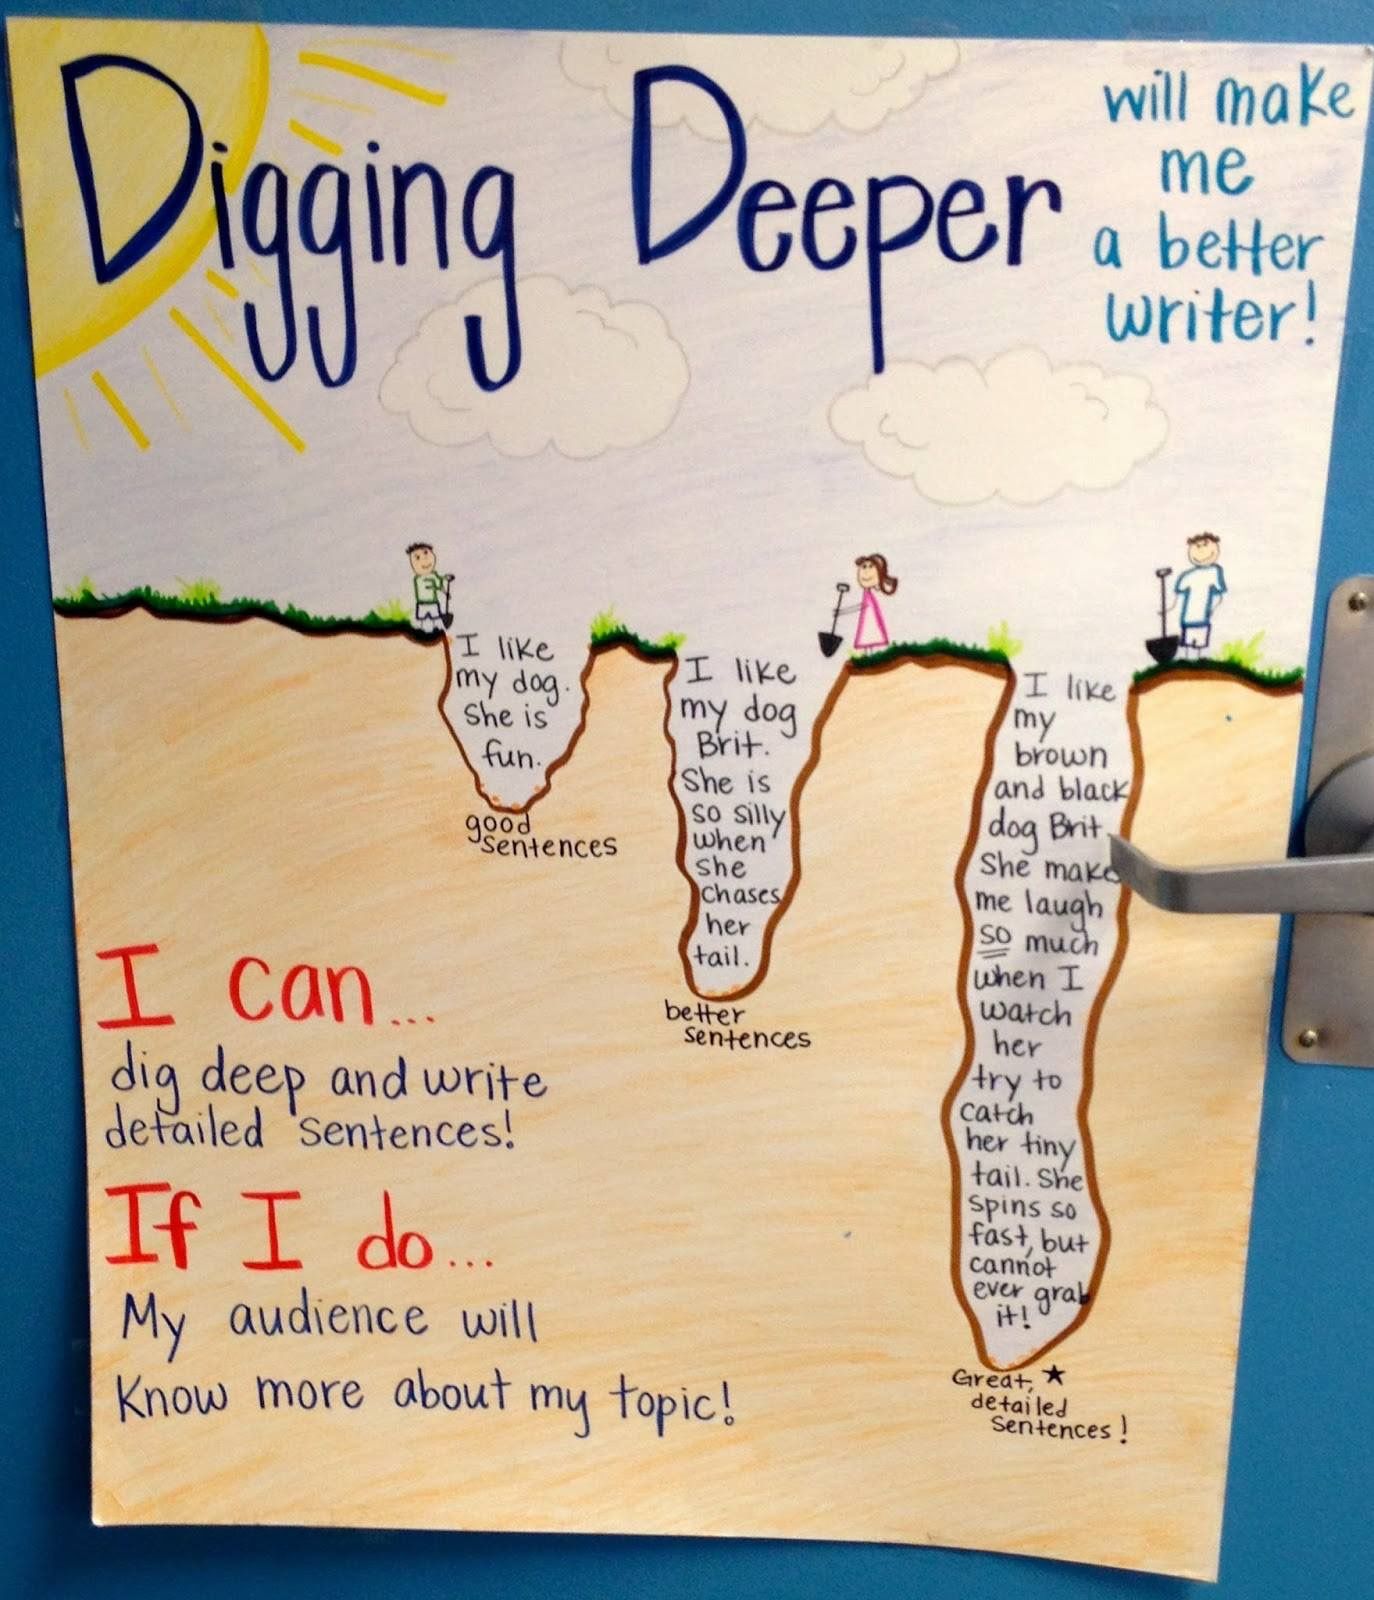 Digging Deeper
will make
me
a better
writer!
I like
my dog.
She is
fun.
good
sentences
I like
my dog
Brit.
She is
so silly
when
she
chases
her
tail.
better
sentences
I like
my
brown
and black
dog Brit
She make
me laugh
so much
when I
watch
her
try to
catch
her tiny
tail. She
spins so
fast, but
cannot
ever grab
it!
Great, ★
detailed
sentences!
I can...
dig deep and write
detailed sentences!
If I do...
My audience will
Know more about my topic!